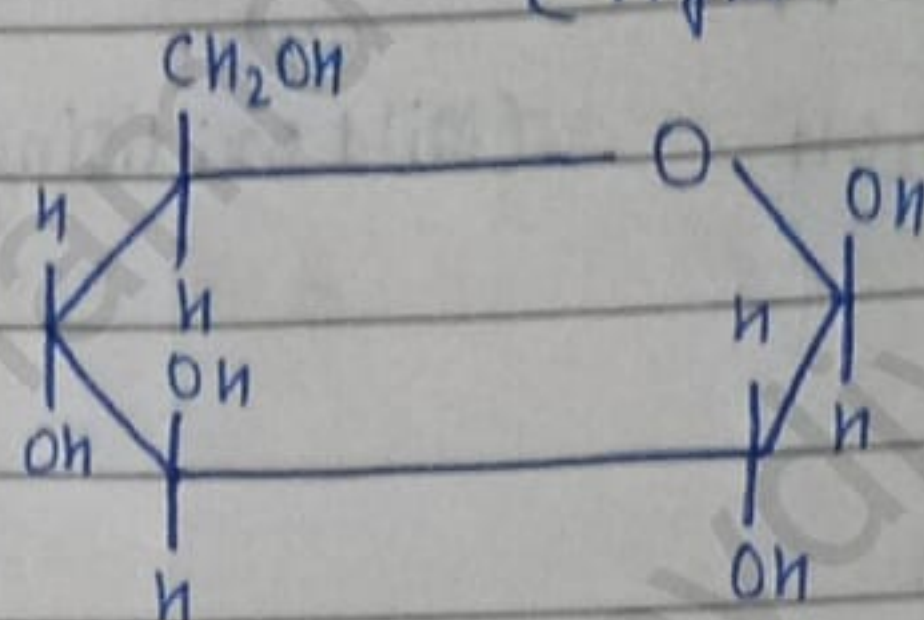 CH₂OH
O
OH
H
H
H
OH
OH
H
H
OH